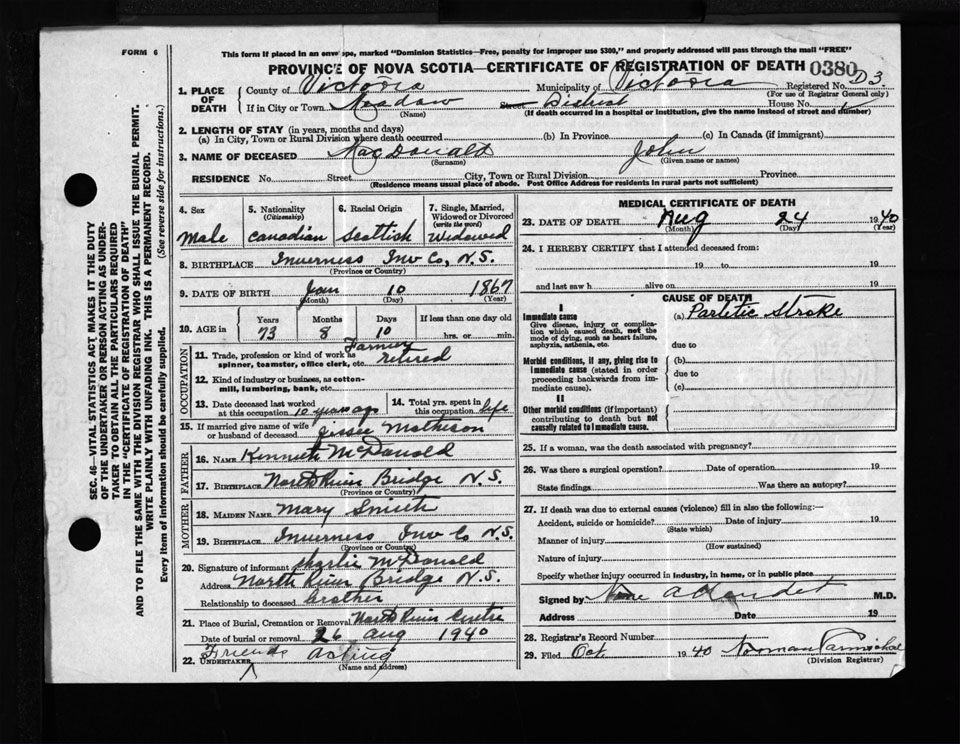 FORM 6
This form if placed in an envelope, marked "Dominion Statistics—Free, penalty for improper use $300," and properly addressed will pass through the mail "FREE"
PROVINCE OF NOVA SCOTIA—CERTIFICATE OF REGISTRATION OF DEATH 0380
1. PLACE OF DEATH County of Victoria Municipality of Victoria Registered No. D3
(For use of Registrar General only)
If in City or Town Meadow (Name) Street District House No.
(If death occurred in a hospital or institution, give the name instead of street and number)
2. LENGTH OF STAY (in years, months and days)
(a) In City, Town or Rural Division where death occurred (b) In Province (c) In Canada (if immigrant)
3. NAME OF DECEASED MacDonald John
(Surname) (Given name or names)
RESIDENCE No. Street City, Town or Rural Division Province
(Residence means usual place of abode. Post Office Address for residents in rural parts not sufficient)
4. Sex 5. Nationality (Citizenship) 6. Racial Origin 7. Single, Married, Widowed or Divorced (write the word)
Male Canadian Scottish Widowed
8. BIRTHPLACE Inverness Inv Co, N.S.
(Province or Country)
9. DATE OF BIRTH Jan 10 1867
(Month) (Day) (Year)
10. AGE in Years Months Days If less than one day old
73 8 10 hrs. or min.
OCCUPATION
11. Trade, profession or kind of work as spinner, teamster, office clerk, etc. Farmer retired
12. Kind of industry or business, as cotton-mill, lumbering, bank, etc.
13. Date deceased last worked at this occupation 10 years ago 14. Total yrs. spent in this occupation life
15. If married give name of wife or husband of deceased Jessie Matheson
FATHER
16. NAME Kenneth McDonald
17. BIRTHPLACE North River Bridge N.S.
(Province or Country)
MOTHER
18. MAIDEN NAME Mary Smith
19. BIRTHPLACE Inverness Inv Co N.S.
(Province or Country)
20. Signature of informant Charlie McDonald
Address North River Bridge N.S.
Relationship to deceased brother
21. Place of Burial, Cremation or Removal North River Centre
Date of burial or removal 26 Aug 1940
22. UNDERTAKER Friends Acting
(Name and address)
MEDICAL CERTIFICATE OF DEATH
23. DATE OF DEATH Aug 24 1940
(Month) (Day) (Year)
24. I HEREBY CERTIFY that I attended deceased from:
19 to 19
and last saw h alive on 19
CAUSE OF DEATH
I
Immediate cause (a) Parletic Stroke
Give disease, injury or complication which caused death, not the mode of dying, such as heart failure, asphyxia, asthenia, etc.
due to
Morbid conditions, if any, giving rise to immediate cause (stated in order proceeding backwards from immediate cause).
(b)
due to
(c)
II
Other morbid conditions (if important) contributing to death but not causally related to immediate cause.
25. If a woman, was the death associated with pregnancy?
26. Was there a surgical operation? Date of operation 19
State findings Was there an autopsy?
27. If death was due to external causes (violence) fill in also the following:—
Accident, suicide or homicide? Date of injury 19
(State which)
Manner of injury
(How sustained)
Nature of injury
Specify whether injury occurred in industry, in home, or in public place
Signed by M.D.
Address Date 19
28. Registrar's Record Number
29. Filed Oct 1940 Norman Carmichael
(Division Registrar)
SEC. 46—VITAL STATISTICS ACT, MAKES IT THE DUTY
OF THE UNDERTAKER OR PERSON ACTING AS UNDER-
TAKER TO OBTAIN ALL THE PARTICULARS REQUIRED
IN THE "CERTIFICATE OF REGISTRATION OF DEATH"
AND TO FILE THE SAME WITH THE DIVISION REGISTRAR WHO SHALL ISSUE THE BURIAL PERMIT.
WRITE PLAINLY WITH UNFADING INK. THIS IS A PERMANENT RECORD.
Every item of information should be carefully supplied. (See reverse side for instructions.)